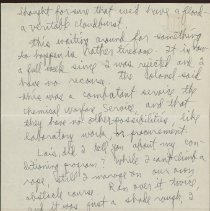 thought for sure that we'd have a flood
a veritable cloudburst.
This waiting around for something
to happen is rather tiresome. It is now
a full week since I was rejected and I
have no recourse. The Colonel said
there was a combatant service the
chemical warfare service, and that
they have no other possibilities, like
laboratory work or procurement.
Lois, did I tell you about my con-
ditioning program? While I can't climb a
rope, still I manage on our own
obstacle course. Ran over it twice
and it was just a shade rough, I